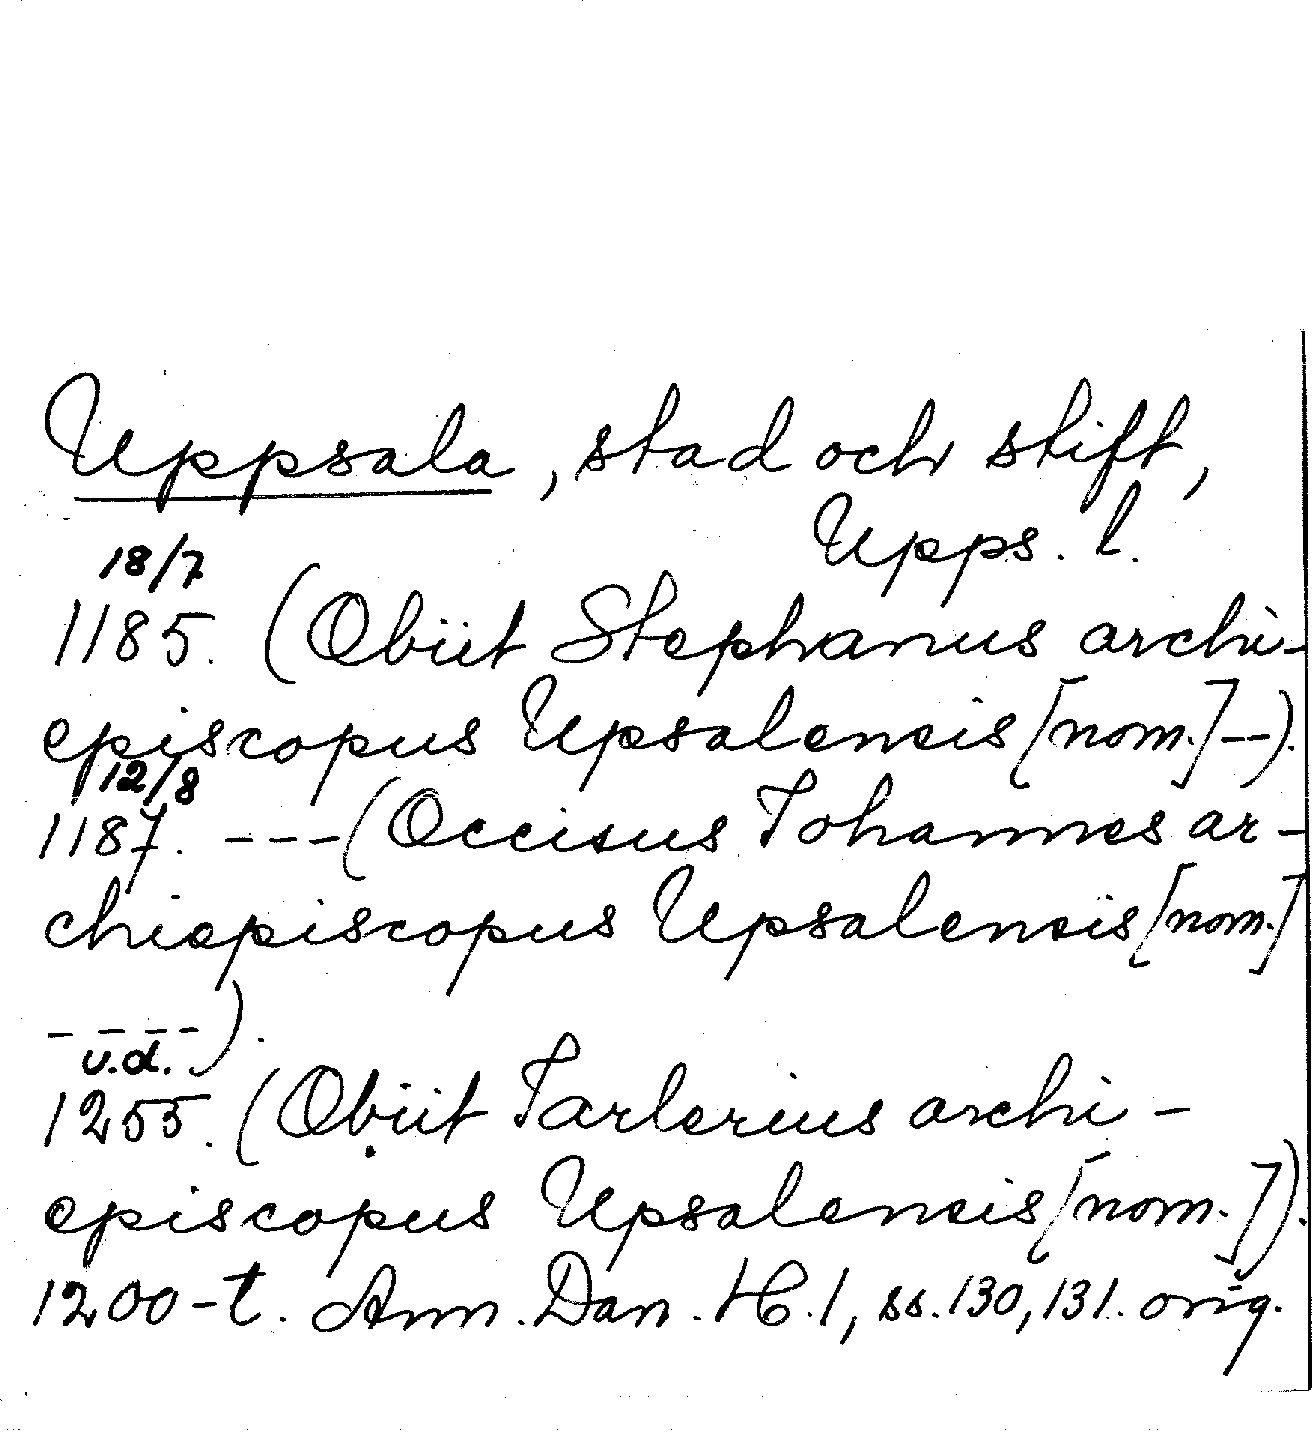 Uppsala, stad och stift,
Upps. l.
18/7
1185. (Obiit Stephanus archi-
episcopus Upsalensis [nom.] --).
12/8
1187. --- (Occisus Johannes ar-
chiepiscopus Upsalensis [nom.]
----).
u.d.
1255. (Obiit Jarlerius archi-
episcopus Upsalensis [nom.]).
1200-t. Ann. Dan. H. 1, ss. 130, 131. orig.